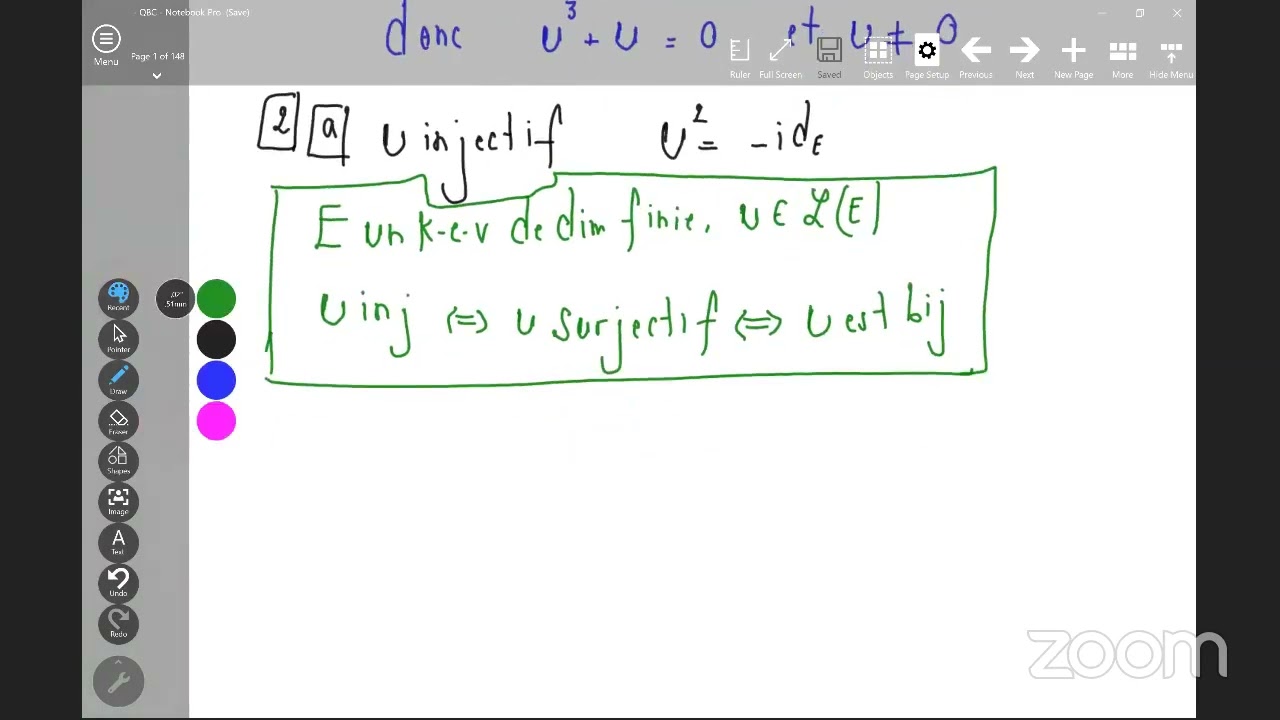 QBC - Notebook Pro (Save)
Menu
Page 1 of 148
donc u³ + u = 0 et u ≠ 0
Ruler
Full Screen
Saved
Objects
Page Setup
Previous
Next
New Page
More
Hide Menu
2 a u injectif u² = -id_E
E un k-e-v de dim finie, u ∈ ℒ(E)
u inj ⇔ u surjectif ⇔ u est bij
Recent
.02"
.51mm
Pointer
Draw
Eraser
Shapes
Image
A
Text
Undo
Redo
zoom